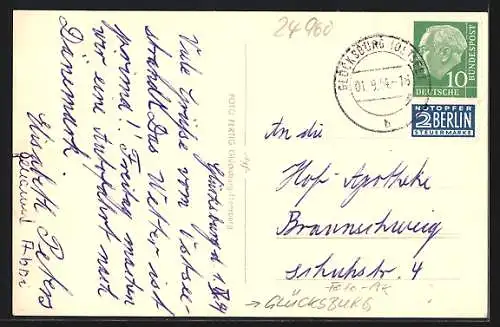 24960
Glücksburg d. 1.IX.54
Viele Grüße vom Ostsee-
strand! Das Wetter ist
prima! Freitag machen
wir eine Autofahrt nach
Dänemark.
Elisabeth Peters
FOTO FERTIG Glücksburg-Flensburg
GLÜCKSBURG (OSTSEE)
01.9.54.-18
b
10
DEUTSCHE
BUNDESPOST
NOTOPFER
2 BERLIN
STEUERMARKE
An die
Hof-Apotheke
Braunschweig
Schuhstr. 4
Foto-AK
→ GLÜCKSBURG